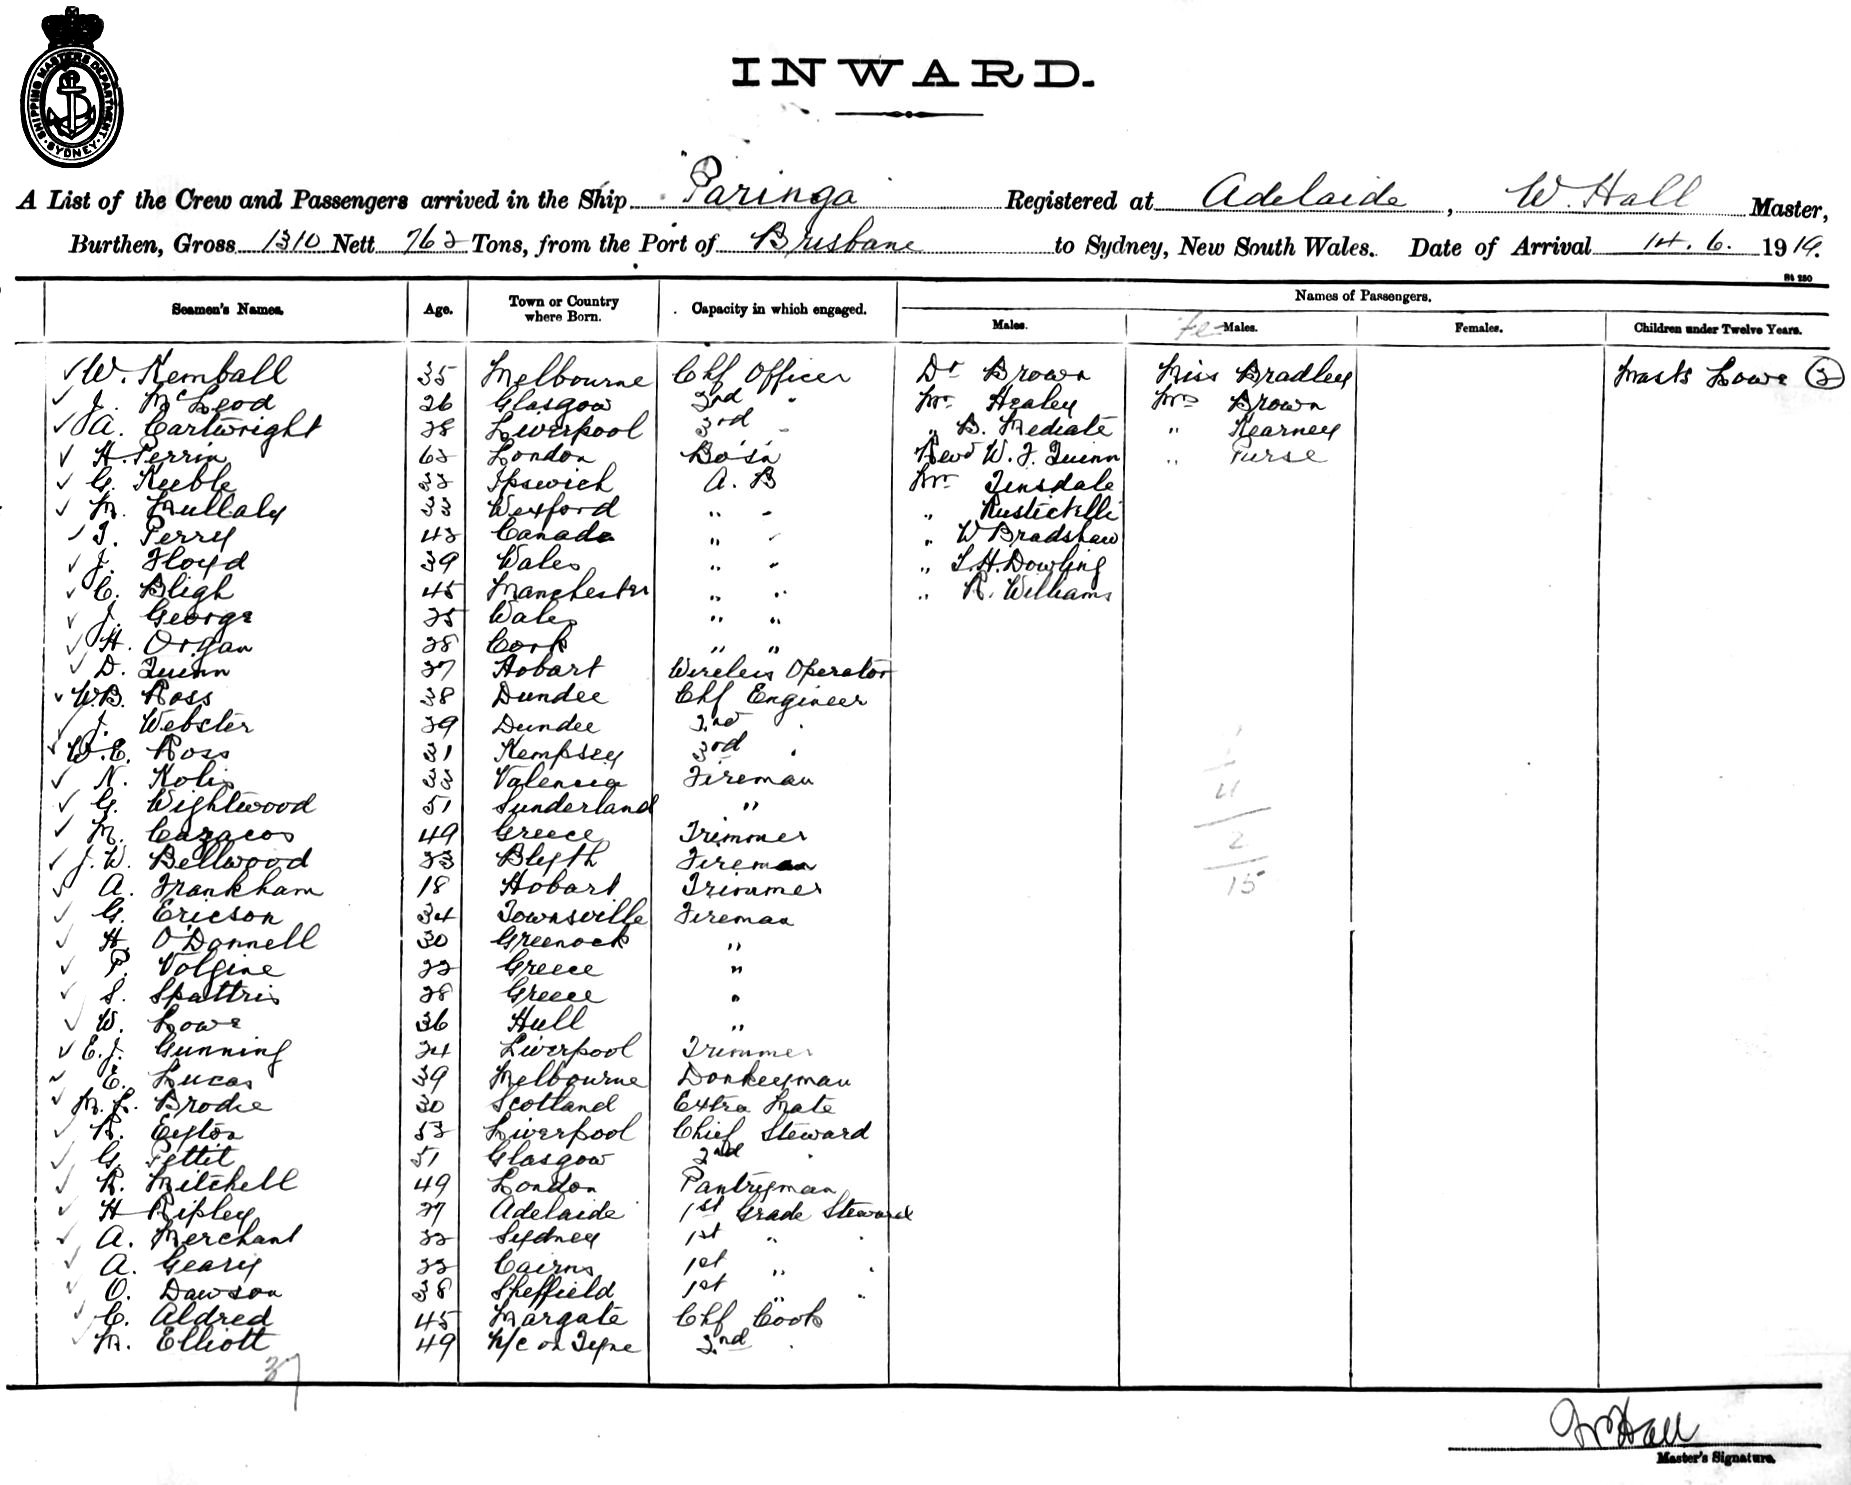 SHIPPING MASTERS DEPARTMENT
SYDNEY
INWARD.
A List of the Crew and Passengers arrived in the Ship Paringa Registered at Adelaide, W. Hall Master,
Burthen, Gross 1310 Nett 762 Tons, from the Port of Brisbane to Sydney, New South Wales. Date of Arrival 14. 6. 1919.
St 280
Seamen's Names. Age. Town or Country where Born. Capacity in which engaged. Names of Passengers.
Males. Fe Males. Females. Children under Twelve Years.
W. Kemball 35 Melbourne Chf Officer Dr Brown Miss Bradley Mast's Lowe (2)
J. McLeod 26 Glasgow 2nd " Mr Healey Mrs Brown
A. Cartwright 28 Liverpool 3rd " " B. Mediate " Kearney
H. Perrin 62 London Bo's'n Revd W. J. Quinn " Purse
G. Keeble 32 Ipswich A. B Mr Tinsdale
M. Mullaly 33 Wexford " " " Rustichelli
T. Perry 42 Canada " " " W Bradshaw
J. Floyd 39 Wales " " " T. H. Dowling
C. Bligh 45 Manchester " " " R. Williams
J. George 25 Wales " "
H. Organ 28 Cork " "
D. Quinn 27 Hobart Wireless Operator
W.B. Ross 38 Dundee Chf Engineer
J. Webster 29 Dundee 2nd "
W. E. Ross 31 Kempsey 3rd "
N. Kolis 33 Valencia Fireman
G. Wightwood 51 Sunderland "
M. Cazacos 49 Greece Trimmer 4
J. W. Bellwood 23 Blyth Fireman 2
A. Frankham 18 Hobart Trimmer 15
G. Ericson 34 Townsville Fireman
H. O'Donnell 30 Greenock "
P. Volgine 22 Greece "
S. Spattris 28 Greece "
W. Lowe 36 Hull "
E. J. Gunning 24 Liverpool Trimmer
E. Lucas 39 Melbourne Donkeyman
M. L. Brodie 30 Scotland Extra Mate
R. Eyton 52 Liverpool Chief Steward
G. Pettit 51 Glasgow 2nd "
R. Mitchell 49 London Pantryman
H Ripley 27 Adelaide 1st Grade Steward
A. Merchant 32 Sydney 1st " "
A. Geary 22 Cairns 1st " "
O. Dawson 38 Sheffield 1st " "
C. Aldred 45 Margate Chf Cook
M. Elliott 49 N/C on Tyne 2nd "
37
W Hall
Master's Signature.